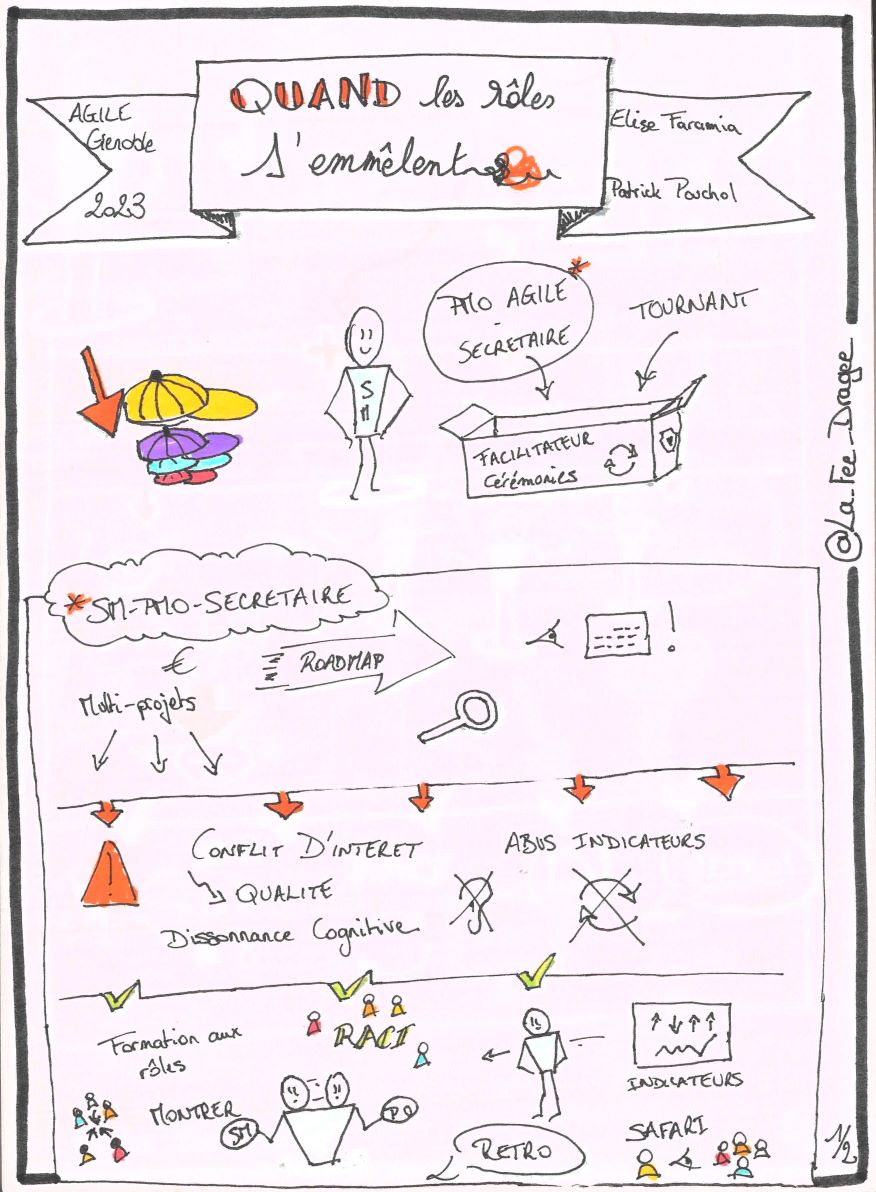 AGILE
Grenoble
2023
QUAND les rôles
s'emmêlent
Elise Faramia
Patrick Pouchol
PMO AGILE
-
SECRETAIRE
TOURNANT
SM
FACILITATEUR
Cérémonies
@La_Fee_Dragee
* SM-PMO-SECRETAIRE
€
Multi-projets
ROADMAP
!
!
CONFLIT D'INTERET
QUALITE
Dissonnance Cognitive
ABUS INDICATEURS
Formation aux
rôles
RACI
MONTRER
SM
PO
RETRO
INDICATEURS
SAFARI
1/2